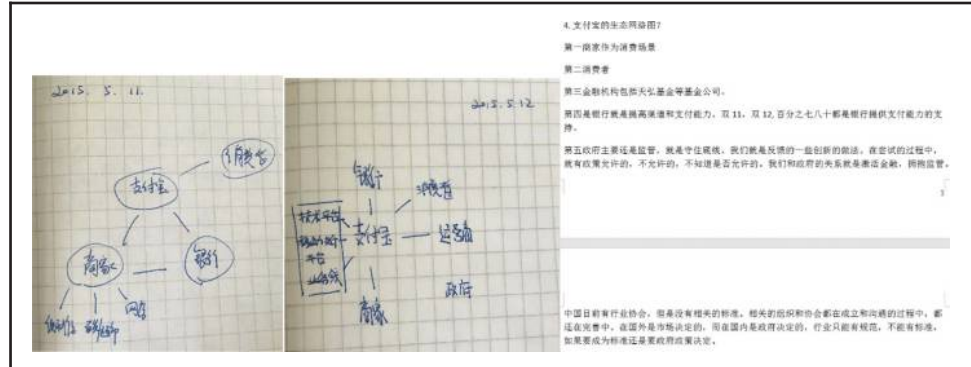 2015. 5. 11.
消费者
支付宝
商家
银行
网店
2015.5.12
银行
消费者
支付宝
运营商
平台
政府
商家
4. 支付宝的生态网络图?
第一商家作为消费场景
第二消费者
第三金融机构包括天弘基金等基金公司。
第四是银行就是提高渠道和支付能力。双 11，双 12, 百分之七八十都是银行提供支付能力的支
持。
第五政府主要还是监管，就是守住底线。我们就是反馈的一些创新的做法。在尝试的过程中，
就有政策允许的，不允许的，不知道是否允许的。我们和政府的关系就是激活金融，拥抱监管。
3
中国目前有行业协会，但是没有相关的标准。相关的组织和协会都在成立和沟通的过程中，都
还在完善中。在国外是市场决定的，而在国内是政府决定的，行业只能有规范，不能有标准。
如果要成为标准还是要政府政策决定。